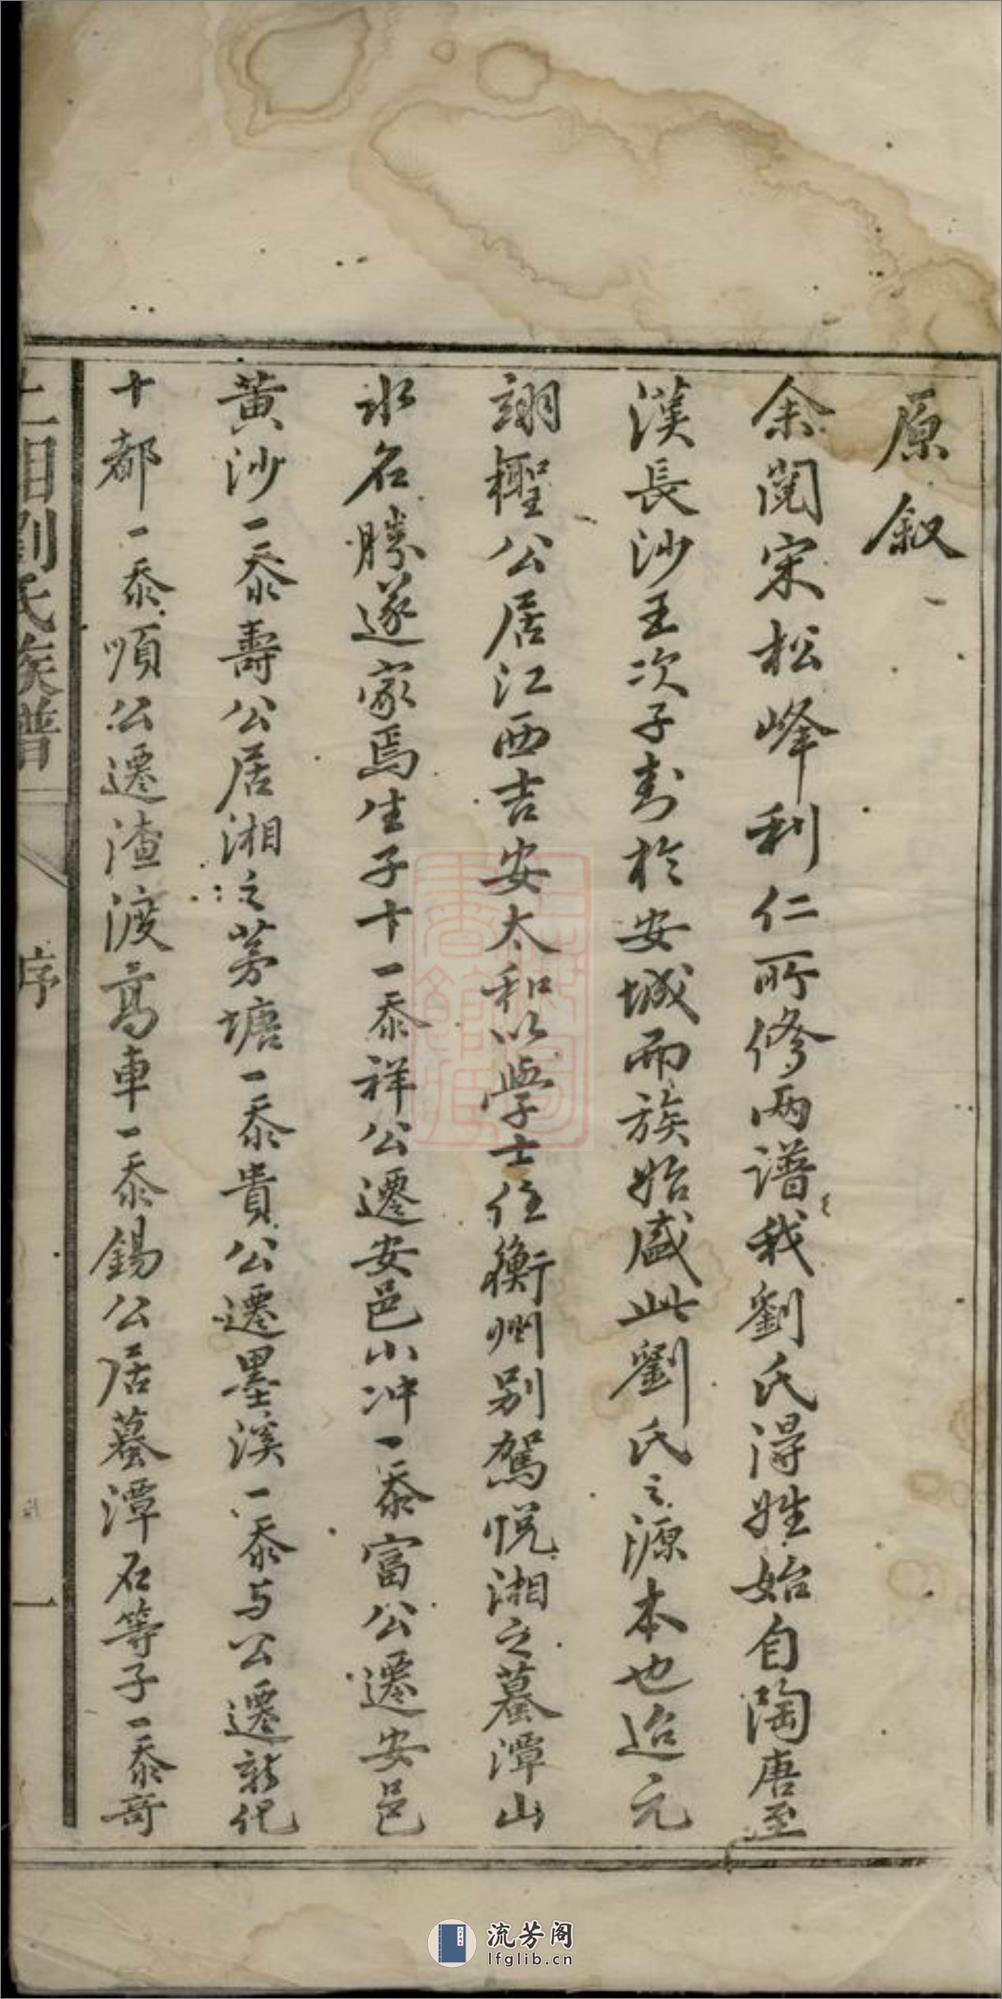 原叙
余閱宋松峰利仁所修兩譜我劉氏得姓始自陶唐至
漢長沙王次子封於安城而族始盛此劉氏之源本也迨元
翊櫁公居江西吉安太和以學士任衡州别駕悦湘之蓦潭山
水名勝遂家焉生子十一泰祥公遷安邑小冲一泰富公遷安邑
黄沙一泰壽公居湘之茅塘一泰貴公遷墨溪一泰与公遷新化
十都一泰順公遷渣渡高車一泰錫公居蓦潭石等子一泰哥
上湘劉氏族譜
序
一
流芳阁
lfglib.cn